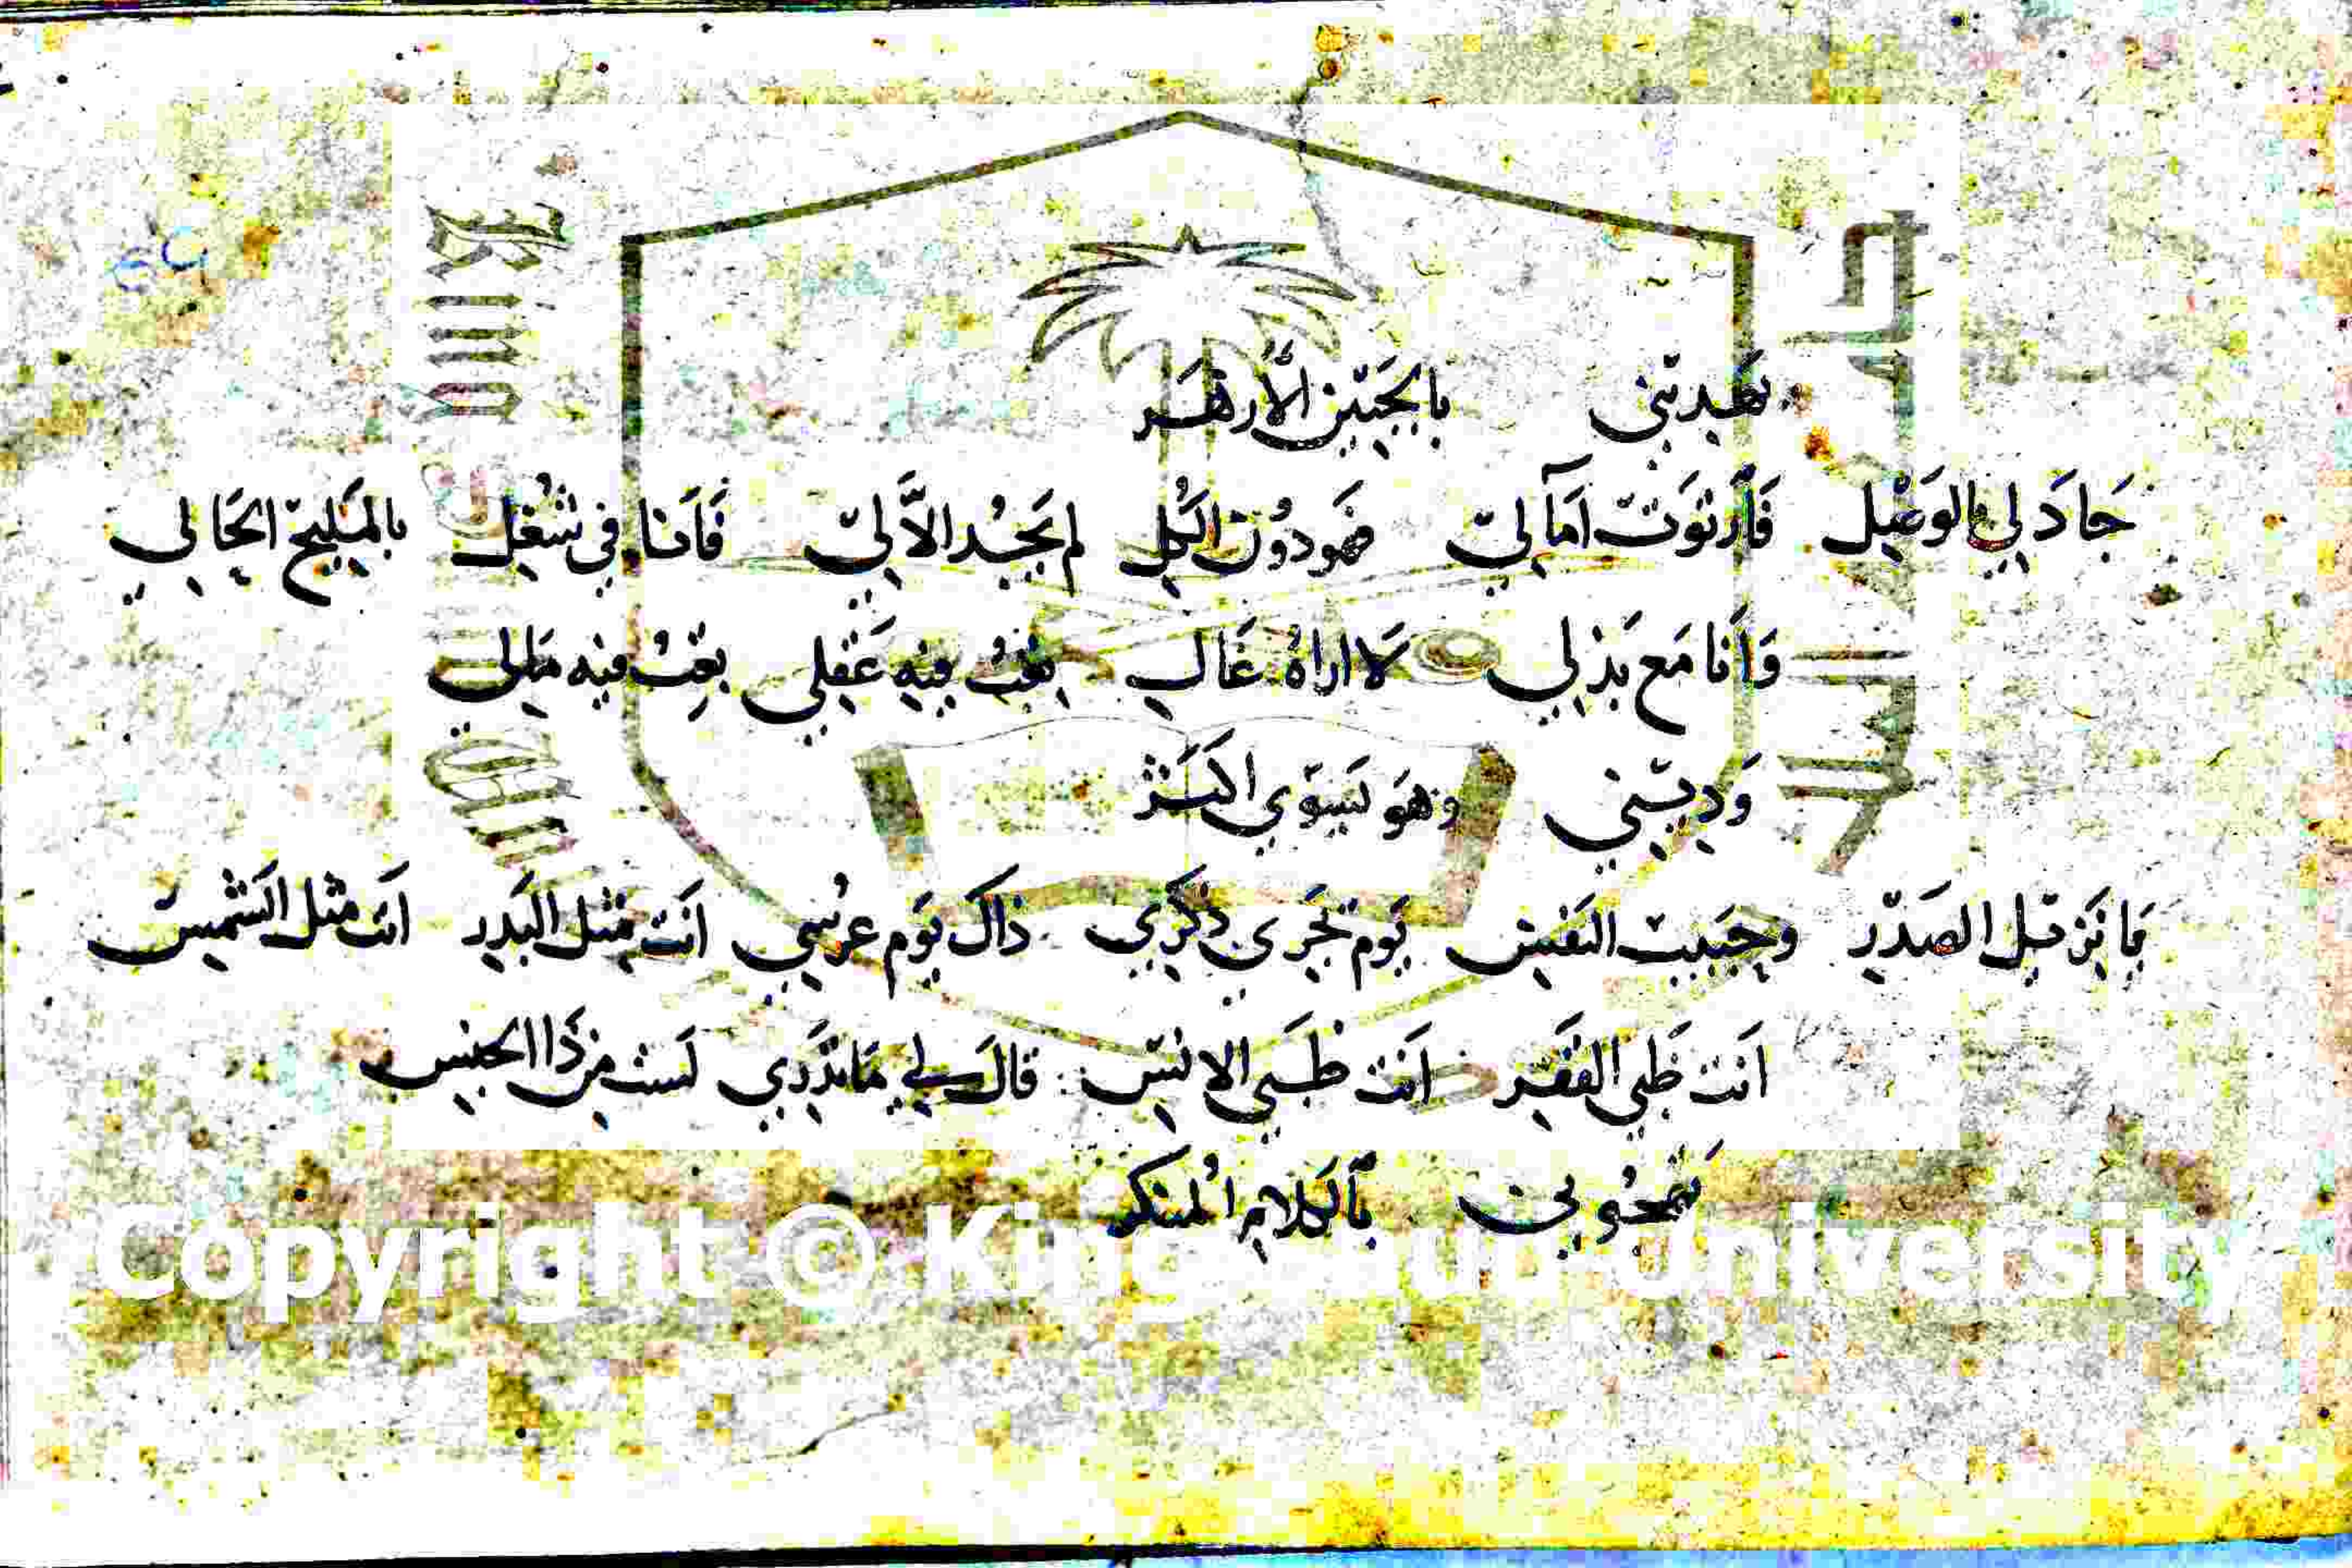 يهديني بالجبين الأزهر
جَادَ لي بالوَصْل فَارْتوَت آمالي فهو دُون الكُل لم يجُد الاَّ لي فَأنا في شغل بالمَليح الحَالي
وَأنَا مَع بَذلي لا اراهُ غَال بعْتُ فيه عَقلي بعْتُ فيه مَالي
وَديني وهوَ يَسوي اكثر
وحَبيب النفس يَوم تجري ذكري ذاك يَوم عرسي انَت مثل البَدر انَت مثل الشمس
انَت ظَبي القفر انَت ظَبي الانس قالَ لي مَا تَدري لَست مِن ذَا الجنس
بالكلام المنكر
Copyright © King Saud University